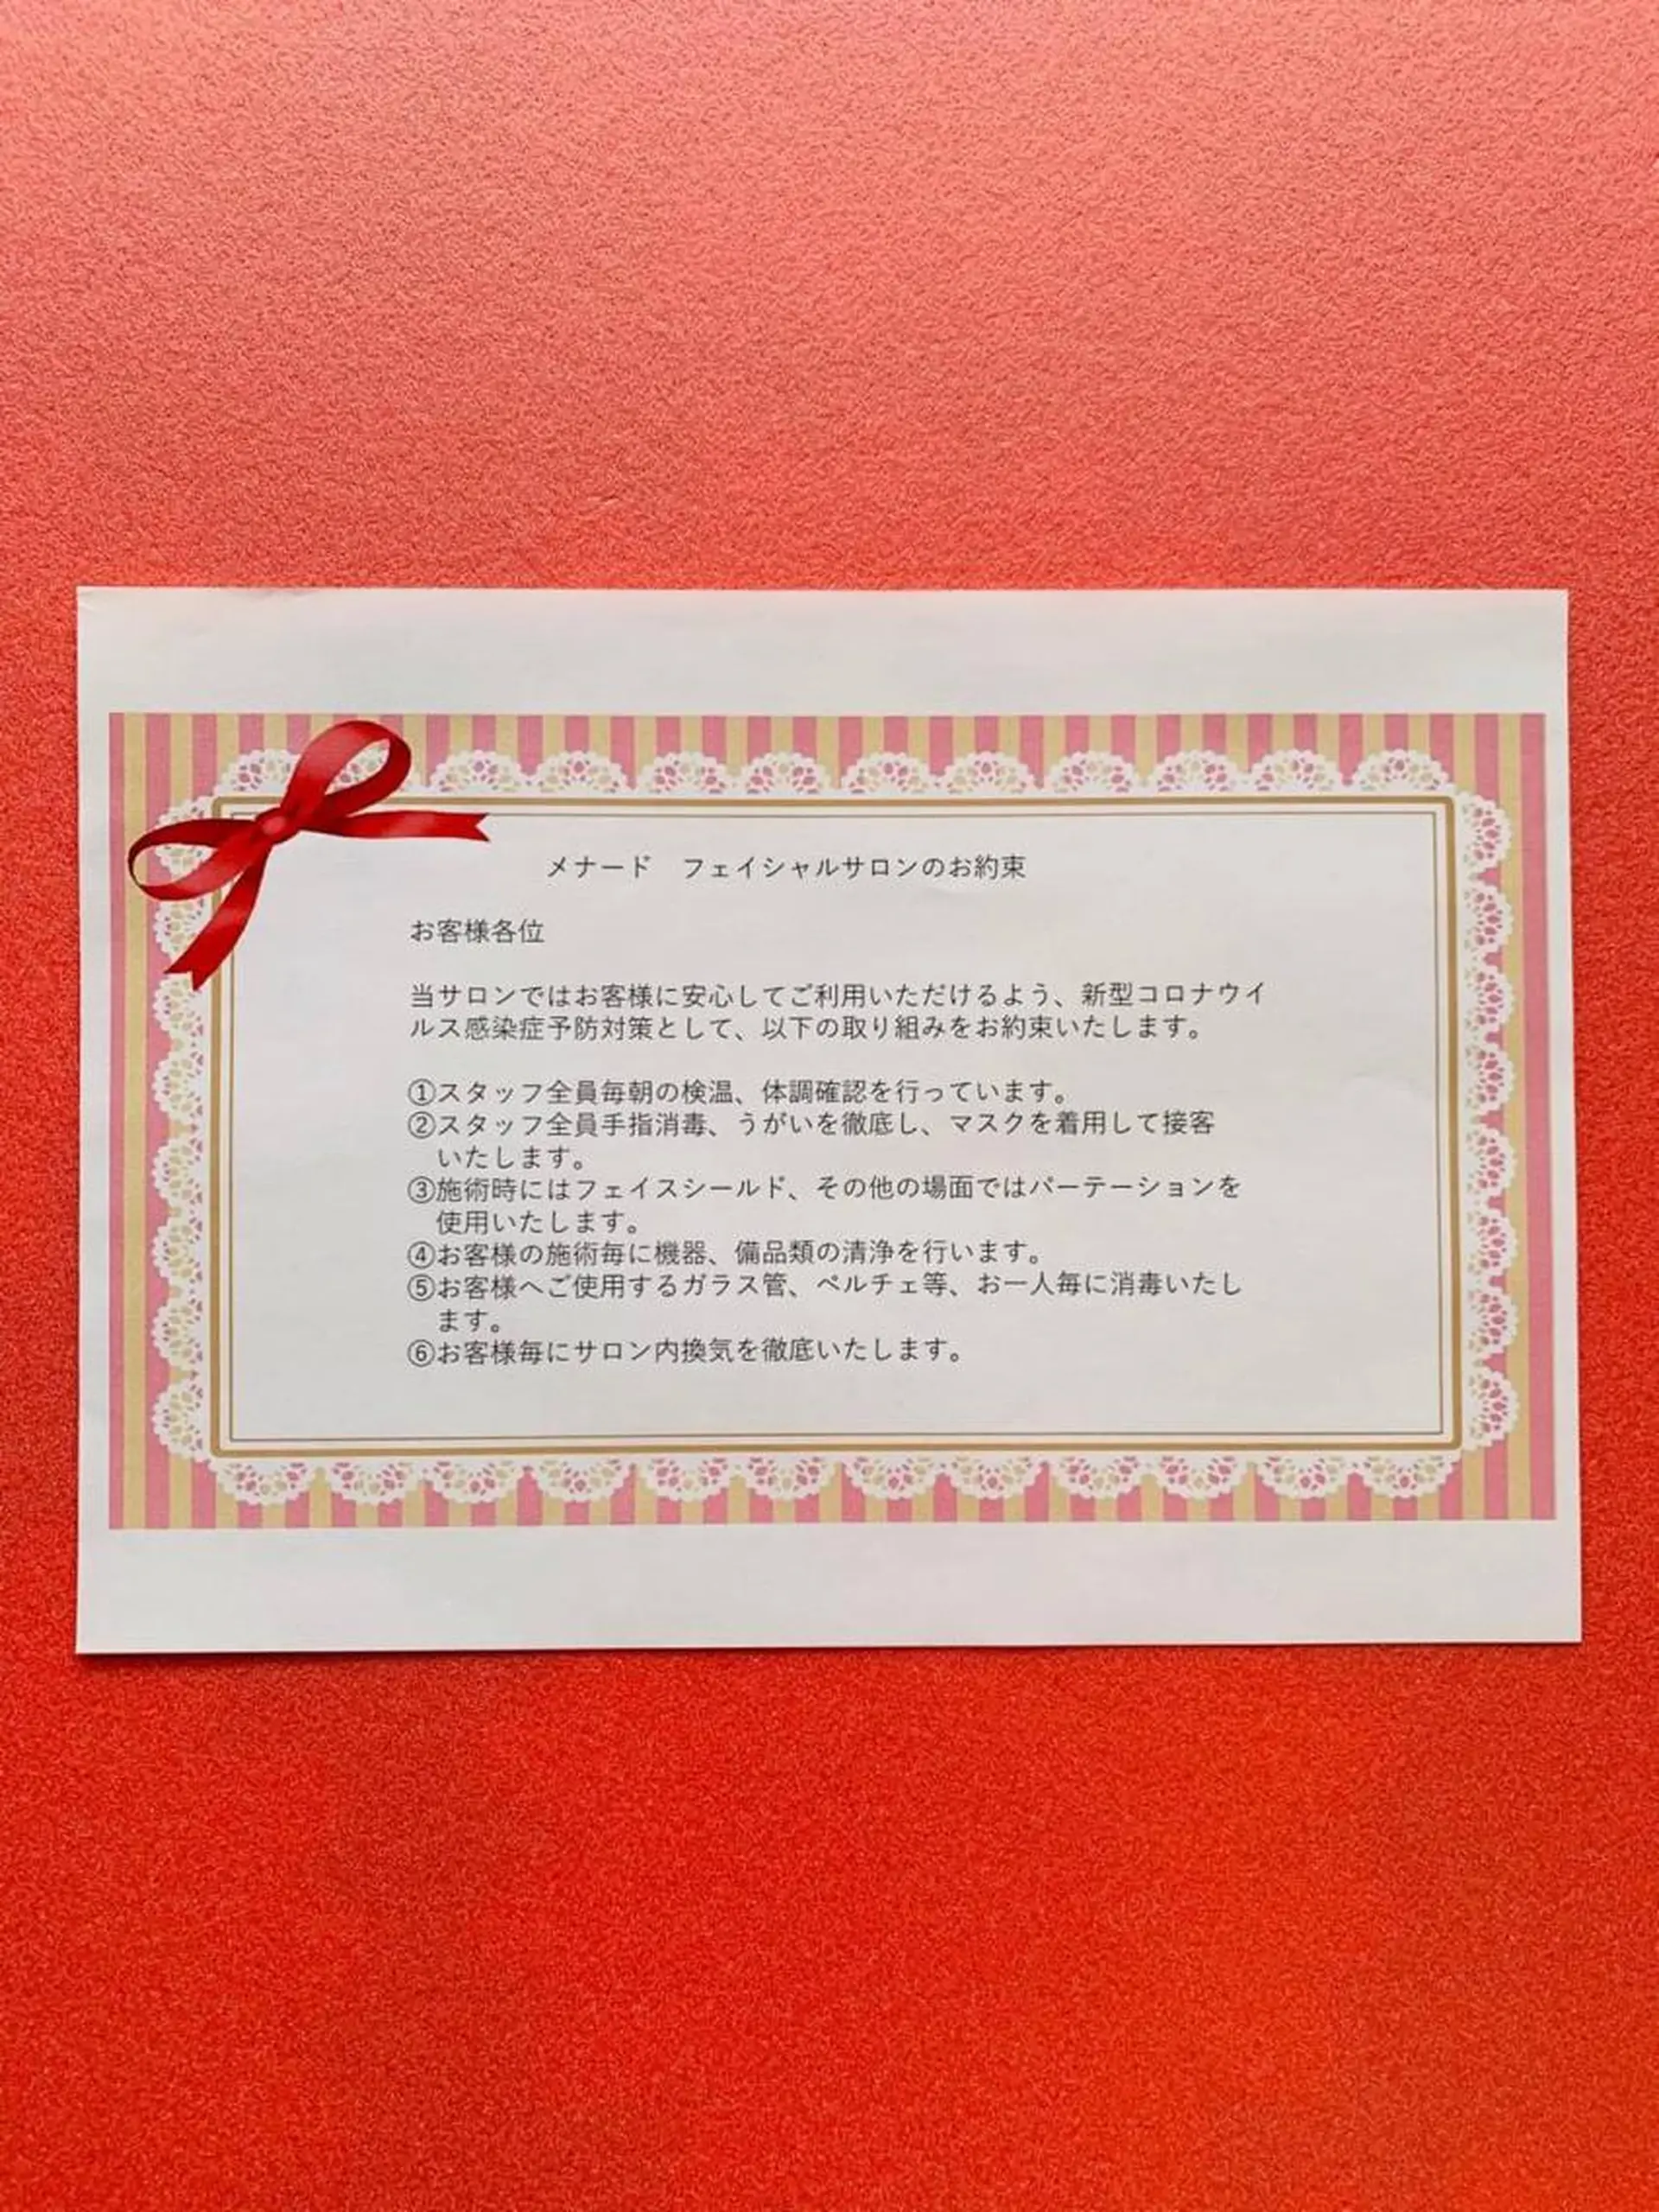 メナード　フェイシャルサロンのお約束
お客様各位
当サロンではお客様に安心してご利用いただけるよう、新型コロナウイ
ルス感染症予防対策として、以下の取り組みをお約束いたします。
①スタッフ全員毎朝の検温、体調確認を行っています。
②スタッフ全員手指消毒、うがいを徹底し、マスクを着用して接客
いたします。
③施術時にはフェイスシールド、その他の場面ではパーテーションを
使用いたします。
④お客様の施術毎に機器、備品類の清浄を行います。
⑤お客様へご使用するガラス管、ペルチェ等、お一人毎に消毒いたし
ます。
⑥お客様毎にサロン内換気を徹底いたします。